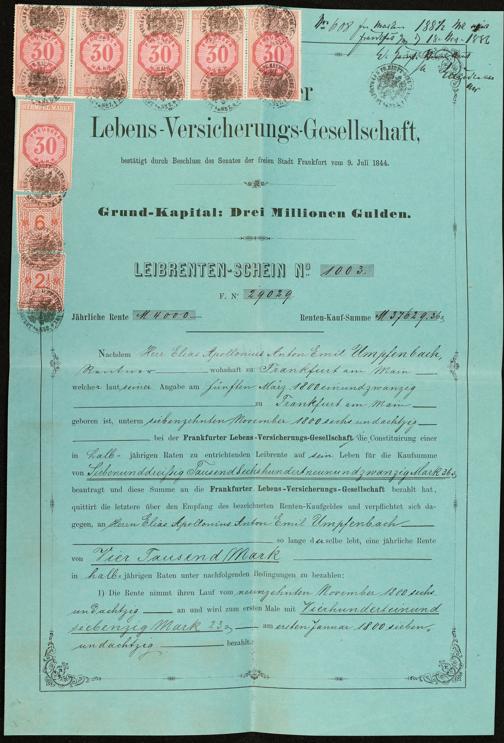 No 608
30
30
30
30
30
30
6
2½
er
Lebens-Versicherungs-Gesellschaft,
bestätigt durch Beschluss des Senates der freien Stadt Frankfurt vom 9. Juli 1844.
Grund-Kapital: Drei Millionen Gulden.
LEIBRENTEN-SCHEIN No 1003.
F. No 29029
Jährliche Rente M 4000.— Renten-Kauf-Summe M 37629.36
Nachdem Herr Elias Apollonius Anton Emil Umpfenbach,
Rentner wohnhaft zu Frankfurt am Main
welcher laut seiner Angabe am fünften März 1800 einundzwanzig
zu Frankfurt am Main
geboren ist, unterm siebenzehnten November 1800 sechs undachtzig
bei der Frankfurter Lebens-Versicherungs-Gesellschaft die Constituirung einer
in halb-jährigen Raten zu entrichtenden Leibrente auf sein Leben für die Kaufsumme
von Siebenunddreißig Tausend Sechshundert neunundzwanzig Mark 36
beantragt und diese Summe an die Frankfurter Lebens-Versicherungs-Gesellschaft bezahlt hat,
quittirt die letztere über den Empfang des bezeichneten Renten-Kaufgeldes und verpflichtet sich da-
gegen, an Herrn Elias Apollonius Anton Emil Umpfenbach
so lange derselbe lebt, eine jährliche Rente
von Vier Tausend Mark
in halb-jährigen Raten unter nachfolgenden Bedingungen zu bezahlen:
1) Die Rente nimmt ihren Lauf vom neunzehnten November 1800 sechs
undachtzig an und wird zum ersten Male mit Vierhundert einund
siebenzig Mark 23 am ersten Januar 1800 sieben
undachtzig bezahlt.